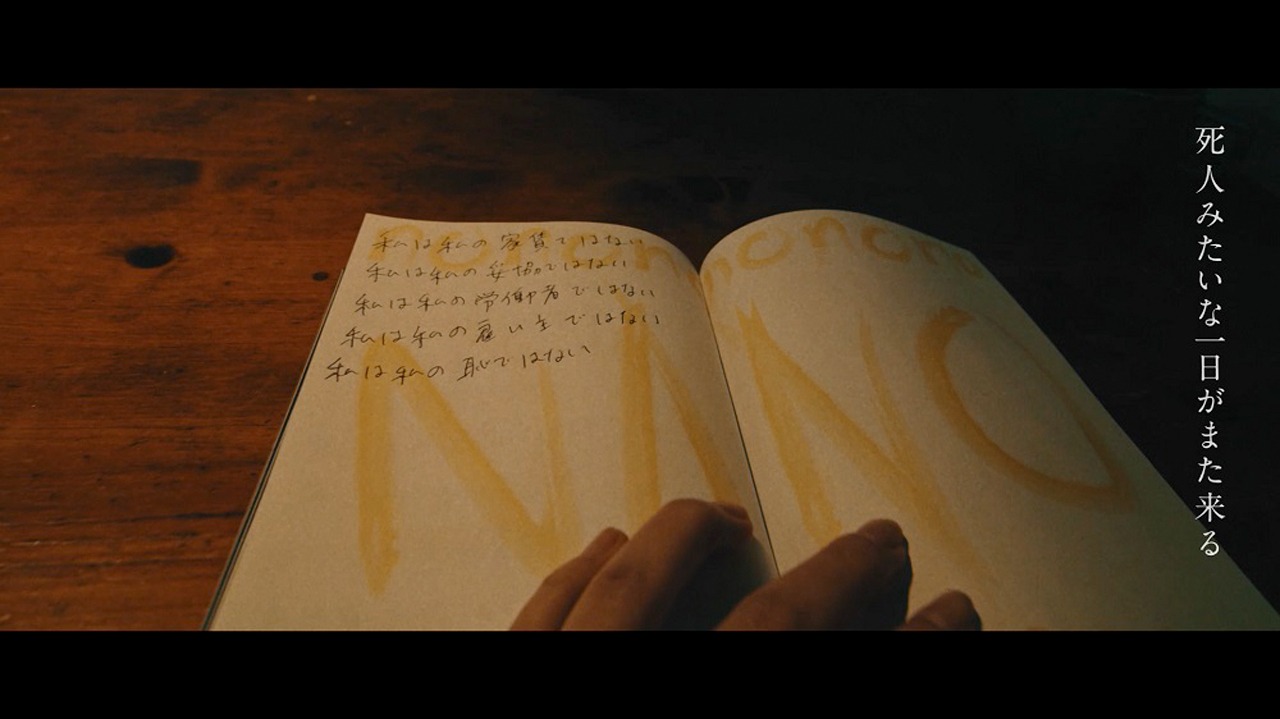 死人みたいな一日がまた来る
nonono
nonono
私は私の家賃ではない
私は私の妥協ではない
私は私の労働者ではない
私は私の雇い主ではない
私は私の恥ではない
NNNO